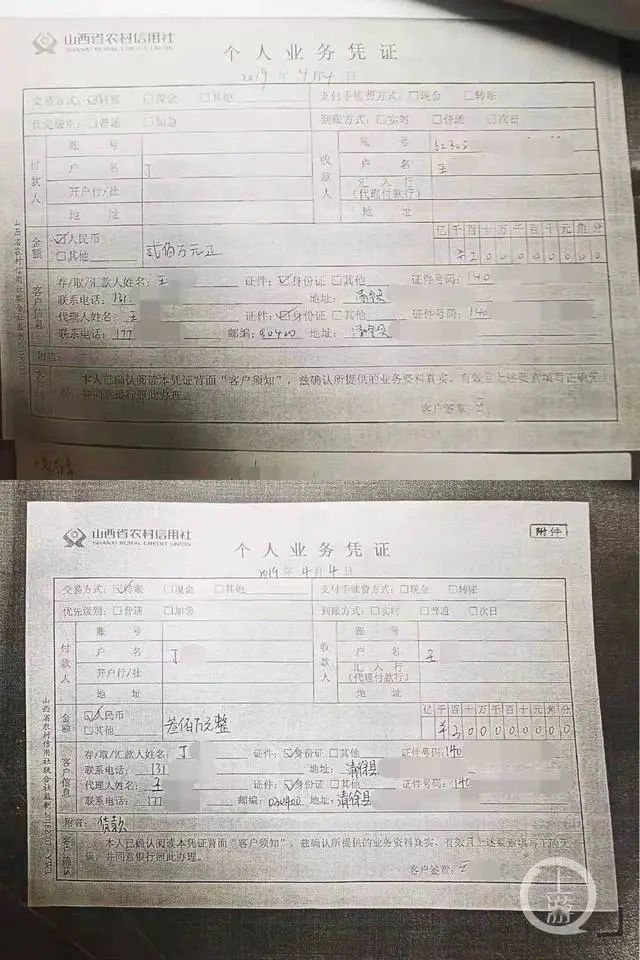 山西省农村信用社
SHANXI RURAL CREDIT UNION
个人业务凭证
2019年4月4日
交易方式:☑转账 □现金 □其他 支付手续费方式:□现金 □转账
优先级别:□普通 □加急 到账方式:□实时 □普通 □次日
付款人 账号 收款人 账号 62305
户名 丁 户名 王
开户行/社 汇入行(代理付款行)
地址 地址
金额 ☑人民币 □其他 贰佰万元正 亿千百十万千百十元角分
¥200000000
客户信息 存/取/汇款人姓名:王 证件:☑身份证 □其他 证件号码:140
联系电话:131 地址:清徐县
代理人姓名:王 证件:☑身份证 □其他 证件号码:140
联系电话:177 邮编:30400 地址:清徐县
附言:
本人已确认阅读本凭证背面“客户须知”,兹确认所提供的业务资料真实、有效且上述要素填写正确无
误,并同意银行照此办理。
客户签章:王
山西省农村信用社
SHANXI RURAL CREDIT UNION
附件
个人业务凭证
2019年4月4日
交易方式:☑转账 □现金 □其他 支付手续费方式:□现金 □转账
优先级别:□普通 □加急 到账方式:□实时 □普通 □次日
付款人 账号 收款人 账号
户名 丁 户名 王
开户行/社 汇入行(代理付款行)
地址 地址
金额 ☑人民币 □其他 叁佰万元整 亿千百十万千百十元角分
¥300000000
客户信息 存/取/汇款人姓名:丁 证件:☑身份证 □其他 证件号码:140
联系电话:131 地址:清徐县
代理人姓名:王 证件:☑身份证 □其他 证件号码:140
联系电话:177 邮编:030400 地址:清徐县
附言:货款
客户确认 本人已确认阅读本凭证背面“客户须知”,兹确认所提供的业务资料真实、有效且上述要素填写正确无
误,并同意银行照此办理。
客户签章:王
山西省农村信用社联合社监制
上游